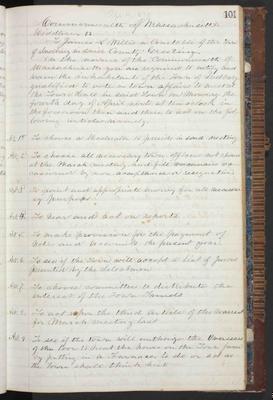 101
Commonwealth of Massachusetts
Middlesex ss
To James A Willis a Constable of the Town
of Sudbury in said County Greeting
In the name of the Commonwealth of
Massachusetts you are required to notify and
warn the inhabitants of the Town of Sudbury
qualified to vote in town affairs to meet at
the Town House in said Town on Monday the
fourth day of April next at ten o'clock in
the forenoon then and there to act on the fol-
lowing articles namely
Art 1st To choose a Moderator to preside in said meeting
Art 2 To choose all necessary town officers not chosen
at the March meeting and fill vacancies oc-
casioned by non acceptance or resignation
Art 3 To grant and appropriate money for all necessa-
ry purposes
Art 4 To hear and act on reports
Art 5 To make provisions for the payment of
notes and accounts the present year
Art 6 To see if the Town will accept a list of jurors
presented by the selectmen
Art 7 To choose committees to distribute the
interest of the Town Funds
Art 8 To act upon the third Article of the warrant
for March meeting last
Art 9 To see if the town will authorize the Overseers
of the Poor to heat the house on the Town farm
by putting in a Furnace to do or act as
the Town shall think best